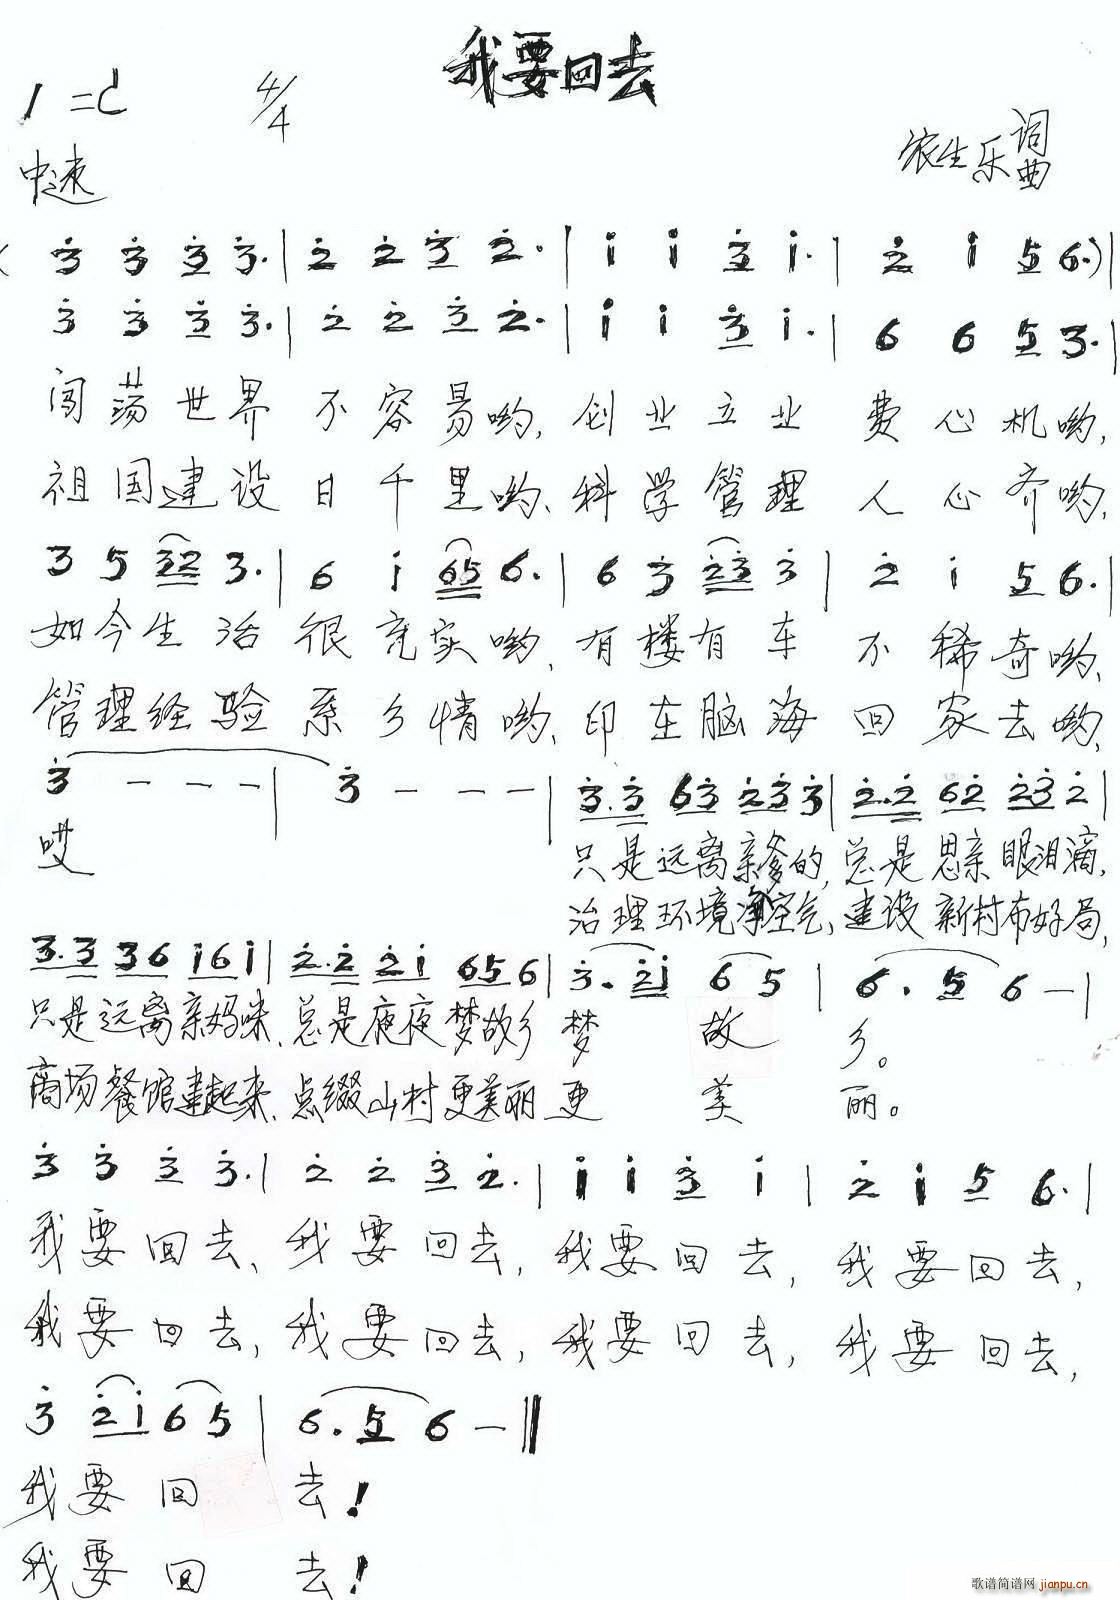 我要回去
1=C 4/4
中速
农生乐 词曲
( 3̇ 3̇ 3̇ 3̇. | 2̇ 2̇ 3̇ 2̇. | 1̇ 1̇ 3̇ 1̇. | 2̇ 1̇ 5 6.) |
3̇ 3̇ 3̇ 3̇. | 2̇ 2̇ 3̇ 2̇. | 1̇ 1̇ 3̇ 1̇. | 6 6 5 3. |
闯荡世界 不容易哟, 创业立业 费心机哟,
祖国建设 日千里哟、科学管理 人心齐哟,
3 5 32 3. | 6 1̇ 65 6. | 6 3̇ 2̇3̇ 3̇ | 2̇ 1̇ 5 6. |
如今生活 很充实哟, 有楼有车 不稀奇哟,
管理经验 系乡情哟, 印在脑海 回家去哟,
3̇ - - - | 3̇ - - - | 3̇.3̇ 63̇ 2̇3̇3̇ | 2̇.2̇ 62̇ 2̇3̇2̇ |
哎 只是远离亲爹的, 总是思亲眼泪滴,
治理环境净空气, 建设新村布好局,
3̇.3̇ 3̇6 1̇61̇ | 2̇.2̇ 2̇1̇ 656 | 3̇. 2̇1̇ 6 5 | 6. 5 6 - |
只是远离亲妈咪, 总是夜夜梦故乡 梦 故 乡。
商场餐馆建起来, 点缀山村更美丽 更 美 丽。
3̇ 3̇ 3̇ 3̇. | 2̇ 2̇ 3̇ 2̇. | 1̇ 1̇ 3̇ 1̇ | 2̇ 1̇ 5 6. |
我要回去、我要回去, 我要回去, 我要回去,
我要回去, 我要回去, 我要回去, 我要回去,
3̇ 2̇1̇ 6 5 | 6. 5 6 - ‖
我要回 去!
我要回 去!
歌谱简谱网 jianpu.cn